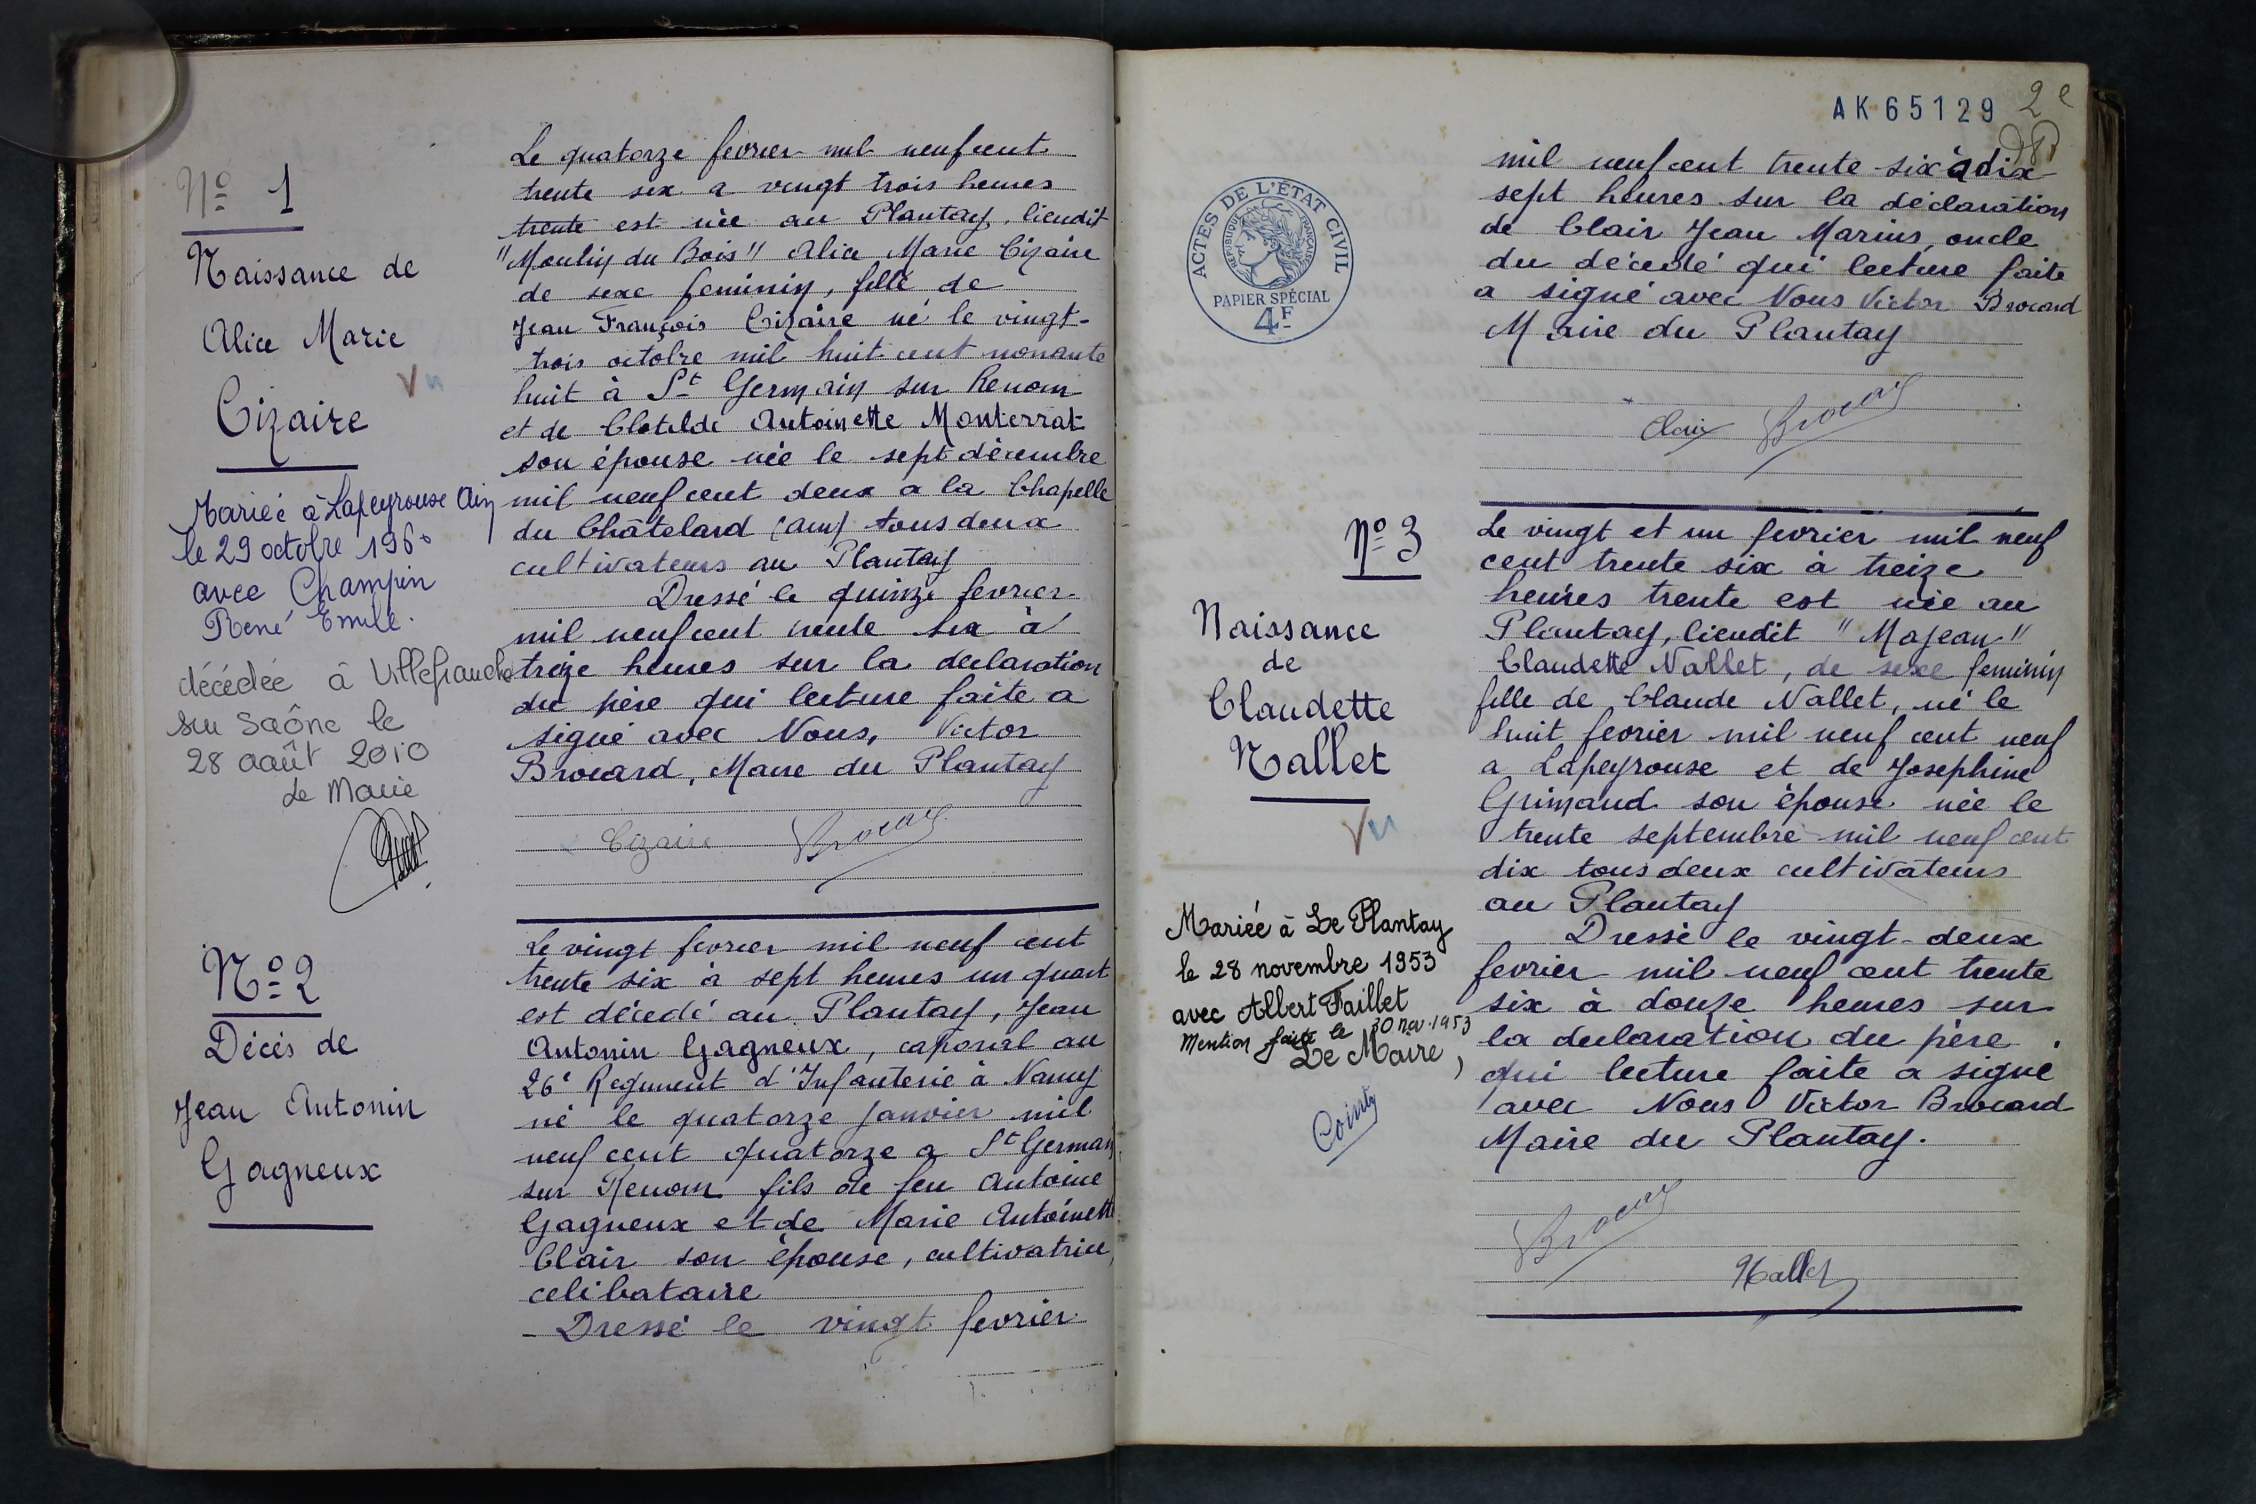 Nº 1
Naissance de
Alice Marie
Cizaire
Vu
Mariée à Lapeyrouse Ain
le 29 octobre 1960
avec Champin
René Emile.
décédée à Villefranche
sur Saône le
28 août 2010
Le Maire
Le quatorze fevrier mil neuf cent
trente six a vingt trois heures
trente est née au Plantay, lieudit
"Moulin du Bois" Alice Marie Cizaire
de sexe feminin, fille de
Jean François Cizaire né le vingt-
trois octobre mil huit cent nonante
huit à St Germain sur Renom
et de Clotilde Antoinette Monterrat
son épouse née le sept décembre
mil neuf cent deux a la Chapelle
du Châtelard (Ain) tous deux
cultivateurs au Plantay
Dressé le quinze fevrier
mil neuf cent trente six à
treize heures sur la declaration
du père qui lecture faite a
signé avec Nous, Victor
Brocard, Maire du Plantay
Cizaire Brocard
Nº 2
Décès de
Jean Antonin
Gagneux
Le vingt fevrier mil neuf cent
trente six à sept heures un quart
est décedé au Plantay, Jean
Antonin Gagneux, caporal au
26e Regiment d'Infanterie à Nancy
né le quatorze janvier mil
neuf cent quatorze a St Germain
sur Renom fils de feu Antoine
Gagneux et de Marie Antoinette
Clair son épouse, cultivatrice,
celibataire
- Dressé le vingt fevrier
AK 65129
2e
ACTES DE L'ÉTAT CIVIL
RÉPUBLIQUE FRANÇAISE
PAPIER SPÉCIAL
4F
mil neuf cent trente-six à dix
sept heures sur la déclaration
de Clair Jean Marius, oncle
du décedé qui lecture faite
a signé avec Nous Victor Brocard
Maire du Plantay
Clair Brocard
Nº 3
Naissance
de
Claudette
Nallet
Vu
Mariée à Le Plantay
le 28 novembre 1953
avec Albert Faillet
Mention faite le 30 nov. 1953
Le Maire,
Le vingt et un fevrier mil neuf
cent trente six à treize
heures trente est née au
Plantay, lieudit "Majean"
Claudette Nallet, de sexe feminin
fille de Claude Nallet, né le
huit fevrier mil neuf cent neuf
a Lapeyrouse et de Josephine
Grimaud son épouse née le
trente septembre mil neuf cent
dix tous deux cultivateurs
au Plantay
Dressé le vingt-deux
fevrier mil neuf cent trente
six à douze heures sur
la declaration du père
qui lecture faite a signé
avec Nous Victor Brocard
Maire du Plantay.
Brocard
Nallet